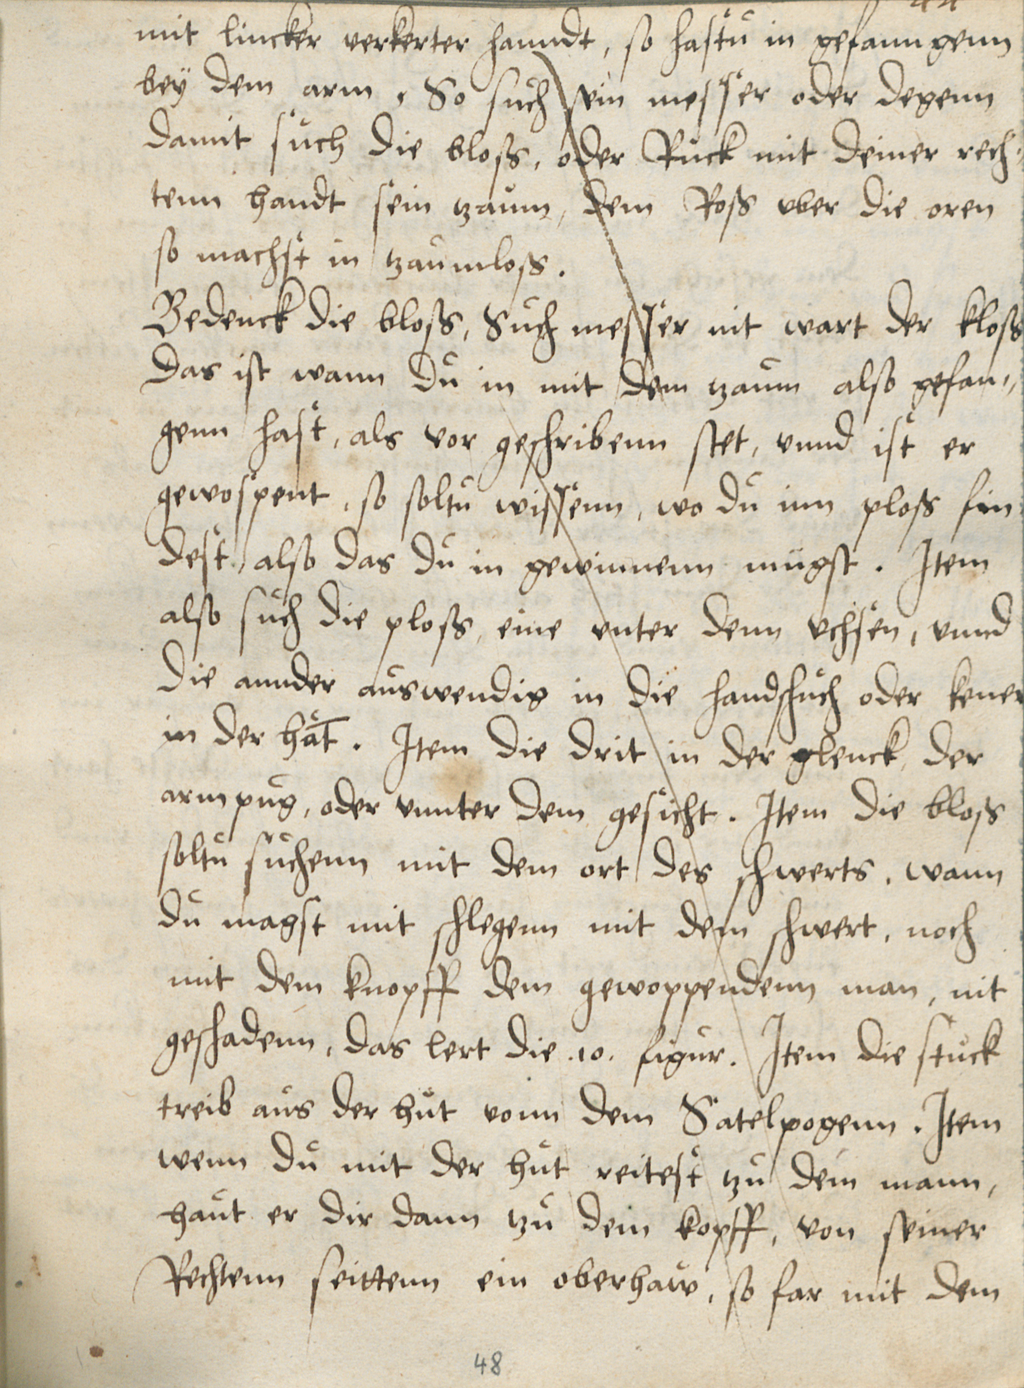 mit lincker verkerter hanndt, so hastu in gefanngenn
bey dem arm. So such sein messer oder degenn
damit such die bloss, oder Ruck mit deiner rech-
tenn handt sein tzaum, dem Ross vber die oren
so machst in tzaumloss.
Bedenck die bloss, Such messer nit wart der kloss
Das ist wann du in mit dem tzaum also gefan-
genn hast, als vor geschribenn stet, vnnd ist er
gewospent, so soltu wissenn, wo du inn ploss fin
dest also das du in gewinnenn mügst. Item
also such die ploss, eine vnter denn vchsen, vnnd
die annder auswendig in die handschuch oder kener
in der hat. Item die drit in der glenck, der
armpug, oder vnnter dem gesicht. Item die bloss
soltu suchenn mit dem ort des schwerts, wann
du magst mit schlegenn mit dem schwert, noch
mit dem knopff dem gewoppendenn man, nit
geschadenn, das lert die .10. figur. Item die stuck
treib aus der hut vonn dem Satelpogenn. Item
wenn du mit der hut reitest tzu dem mann,
haut er dir dann tzu dem kopff, von seiner
Rechtenn seittenn ein oberhaw, so far mit dem
48